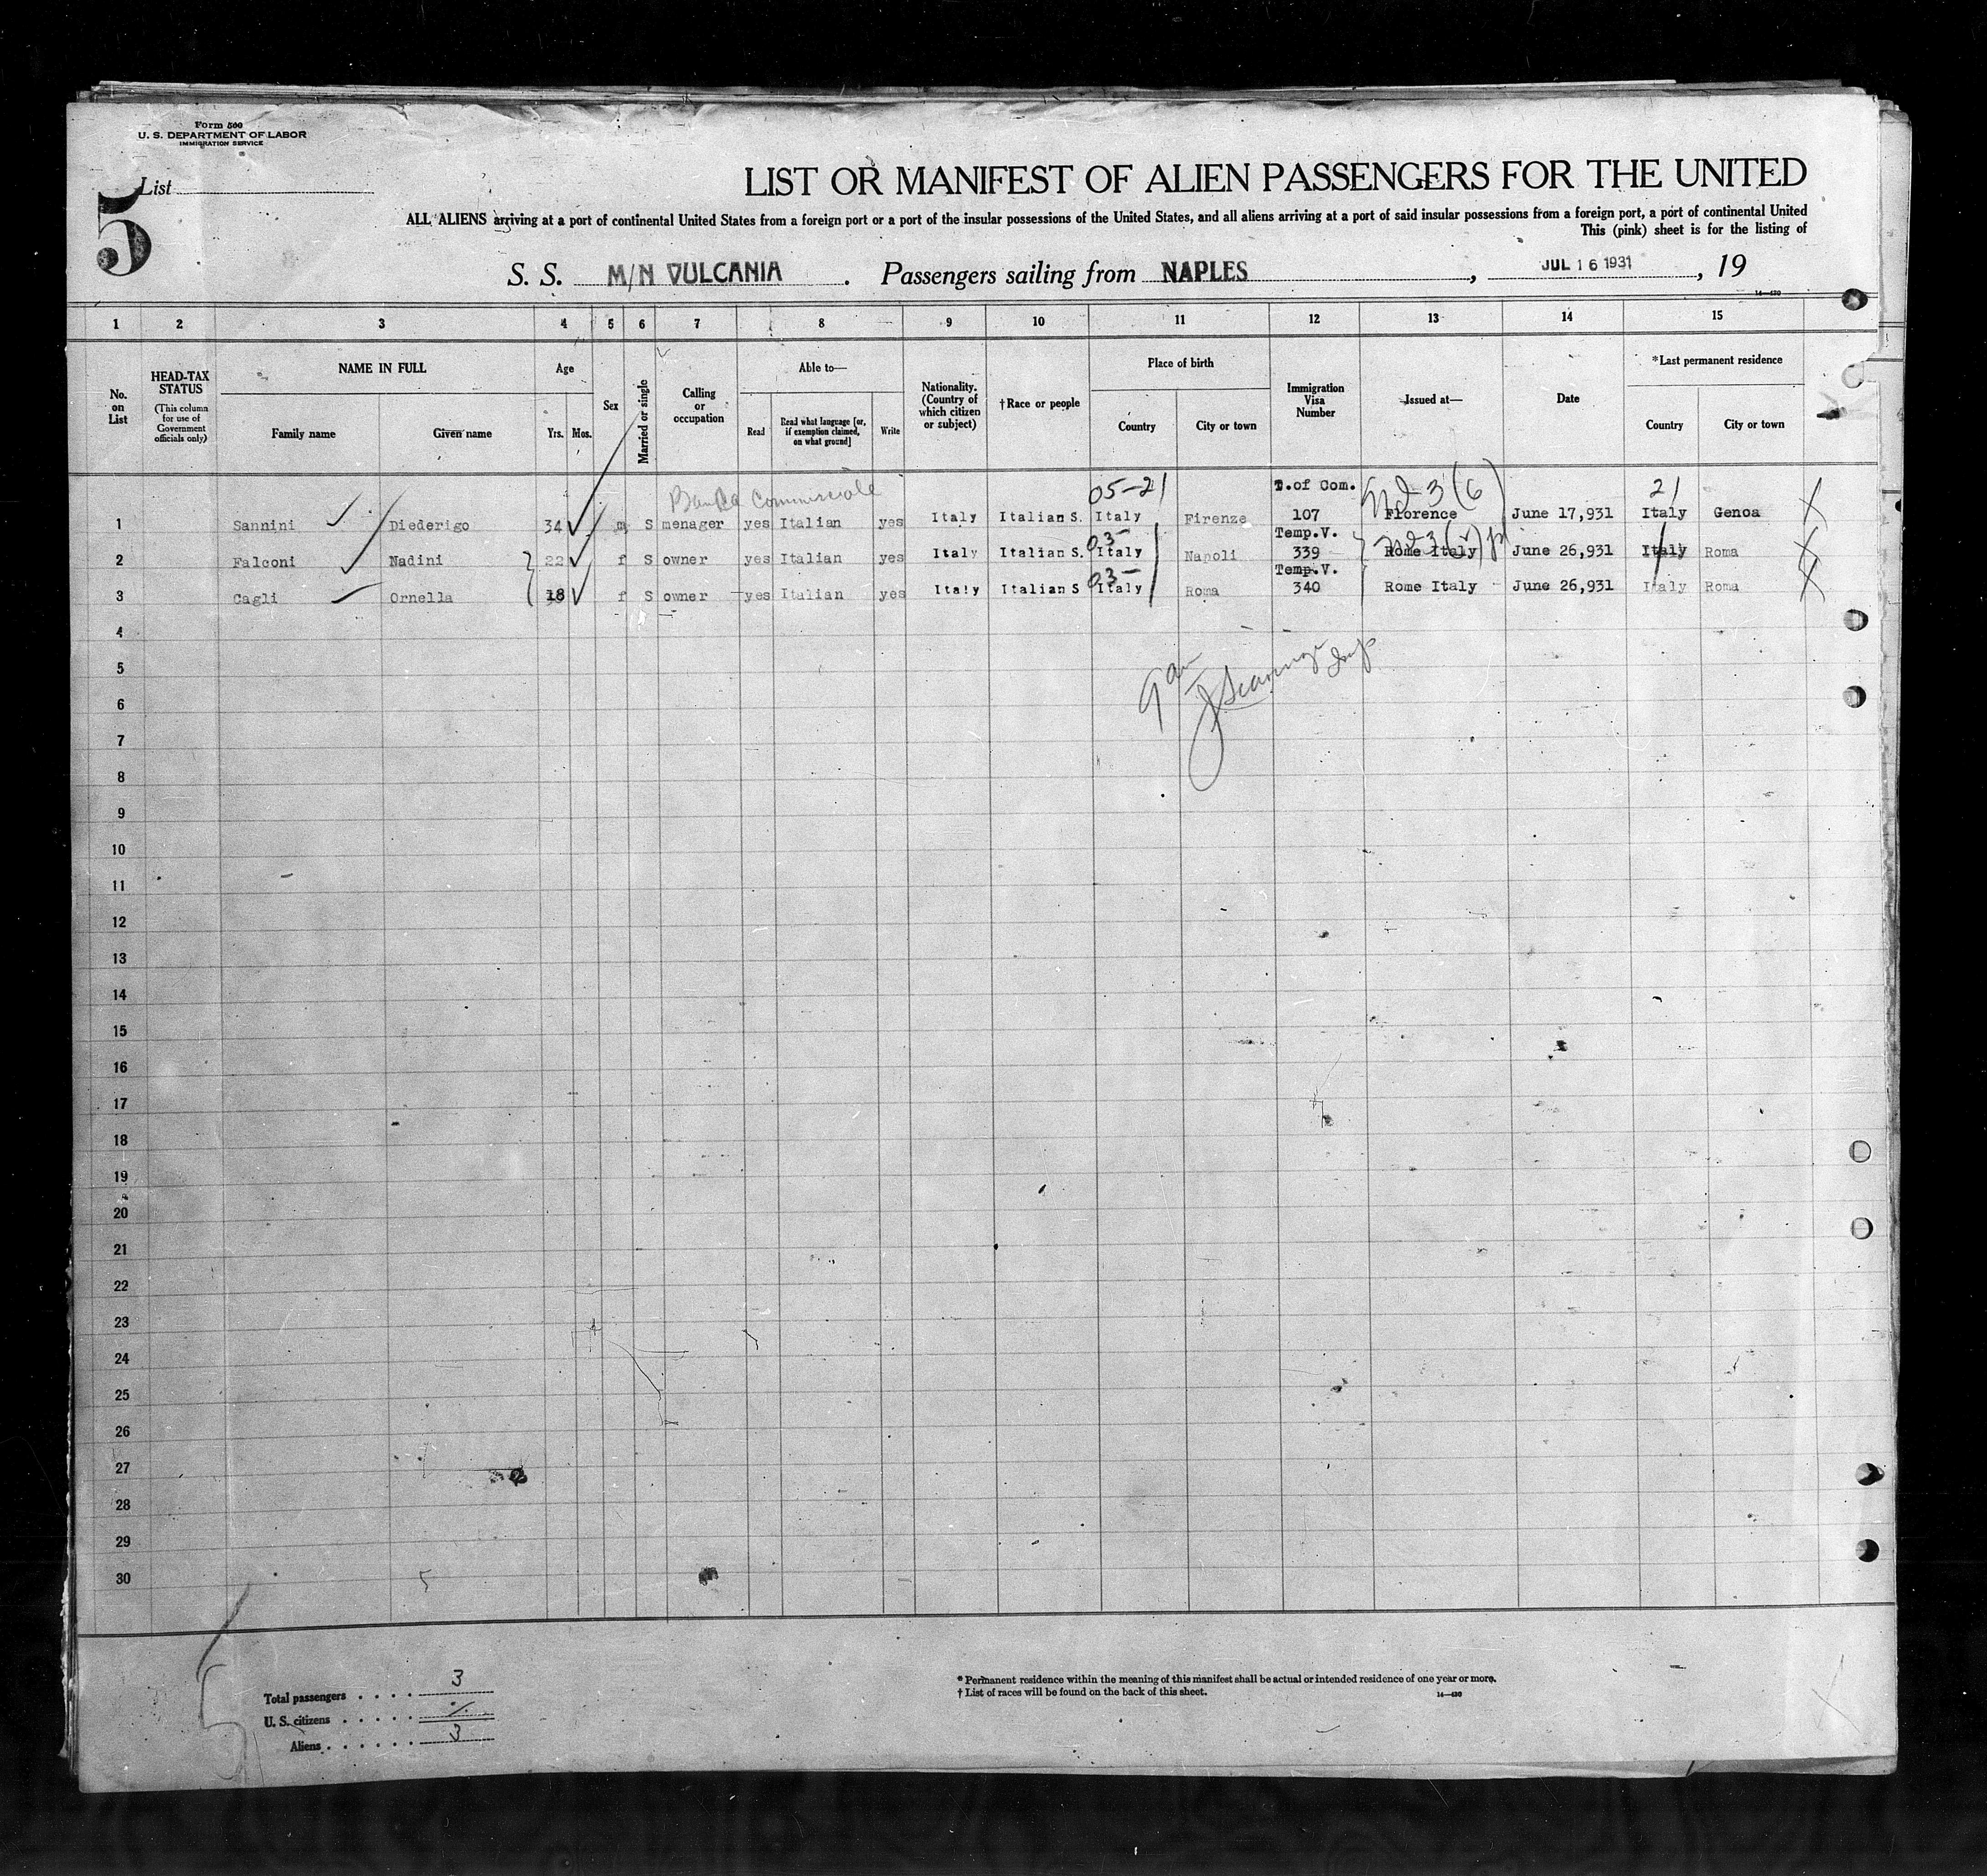 Form 500
U. S. DEPARTMENT OF LABOR
IMMIGRATION SERVICE
5
List
LIST OR MANIFEST OF ALIEN PASSENGERS FOR THE UNITED
ALL ALIENS arriving at a port of continental United States from a foreign port or a port of the insular possessions of the United States, and all aliens arriving at a port of said insular possessions from a foreign port, a port of continental United
This (pink) sheet is for the listing of
S. S. M/N VULCANIA . Passengers sailing from NAPLES , JUL 16 1931 , 19
14—430
1 2 3 4 5 6 7 8 9 10 11 12 13 14 15
No. on List
HEAD-TAX STATUS (This column for use of Government officials only)
NAME IN FULL
Family name Given name
Age
Yrs. Mos.
Sex
Married or single
Calling or occupation
Able to—
Read
Read what language [or, if exemption claimed, on what ground]
Write
Nationality. (Country of which citizen or subject)
†Race or people
Place of birth
Country City or town
Immigration Visa Number
Issued at—
Date
*Last permanent residence
Country City or town
Banca Commerciale 05-21 T.of Com. 3(6) 21
1 Sannini Diederigo 34 m S menager yes Italian yes Italy Italian S. Italy Firenze 107 Florence June 17,931 Italy Genoa
03- Temp.V.
2 Falconi Nadini 22 f S owner yes Italian yes Italy Italian S. Italy Napoli 339 Rome Italy June 26,931 Italy Roma
03- Temp.V.
3 Cagli Ornella 18 f S owner yes Italian yes Italy Italian S Italy Roma 340 Rome Italy June 26,931 Italy Roma
4
5
6
7
8
9
10
11
12
13
14
15
16
17
18
19
20
21
22
23
24
25
26
27
28
29
30 5
Total passengers . . . . 3
U. S. citizens . . . . .
Aliens . . . . . . 3
* Permanent residence within the meaning of this manifest shall be actual or intended residence of one year or more.
† List of races will be found on the back of this sheet.
14—430